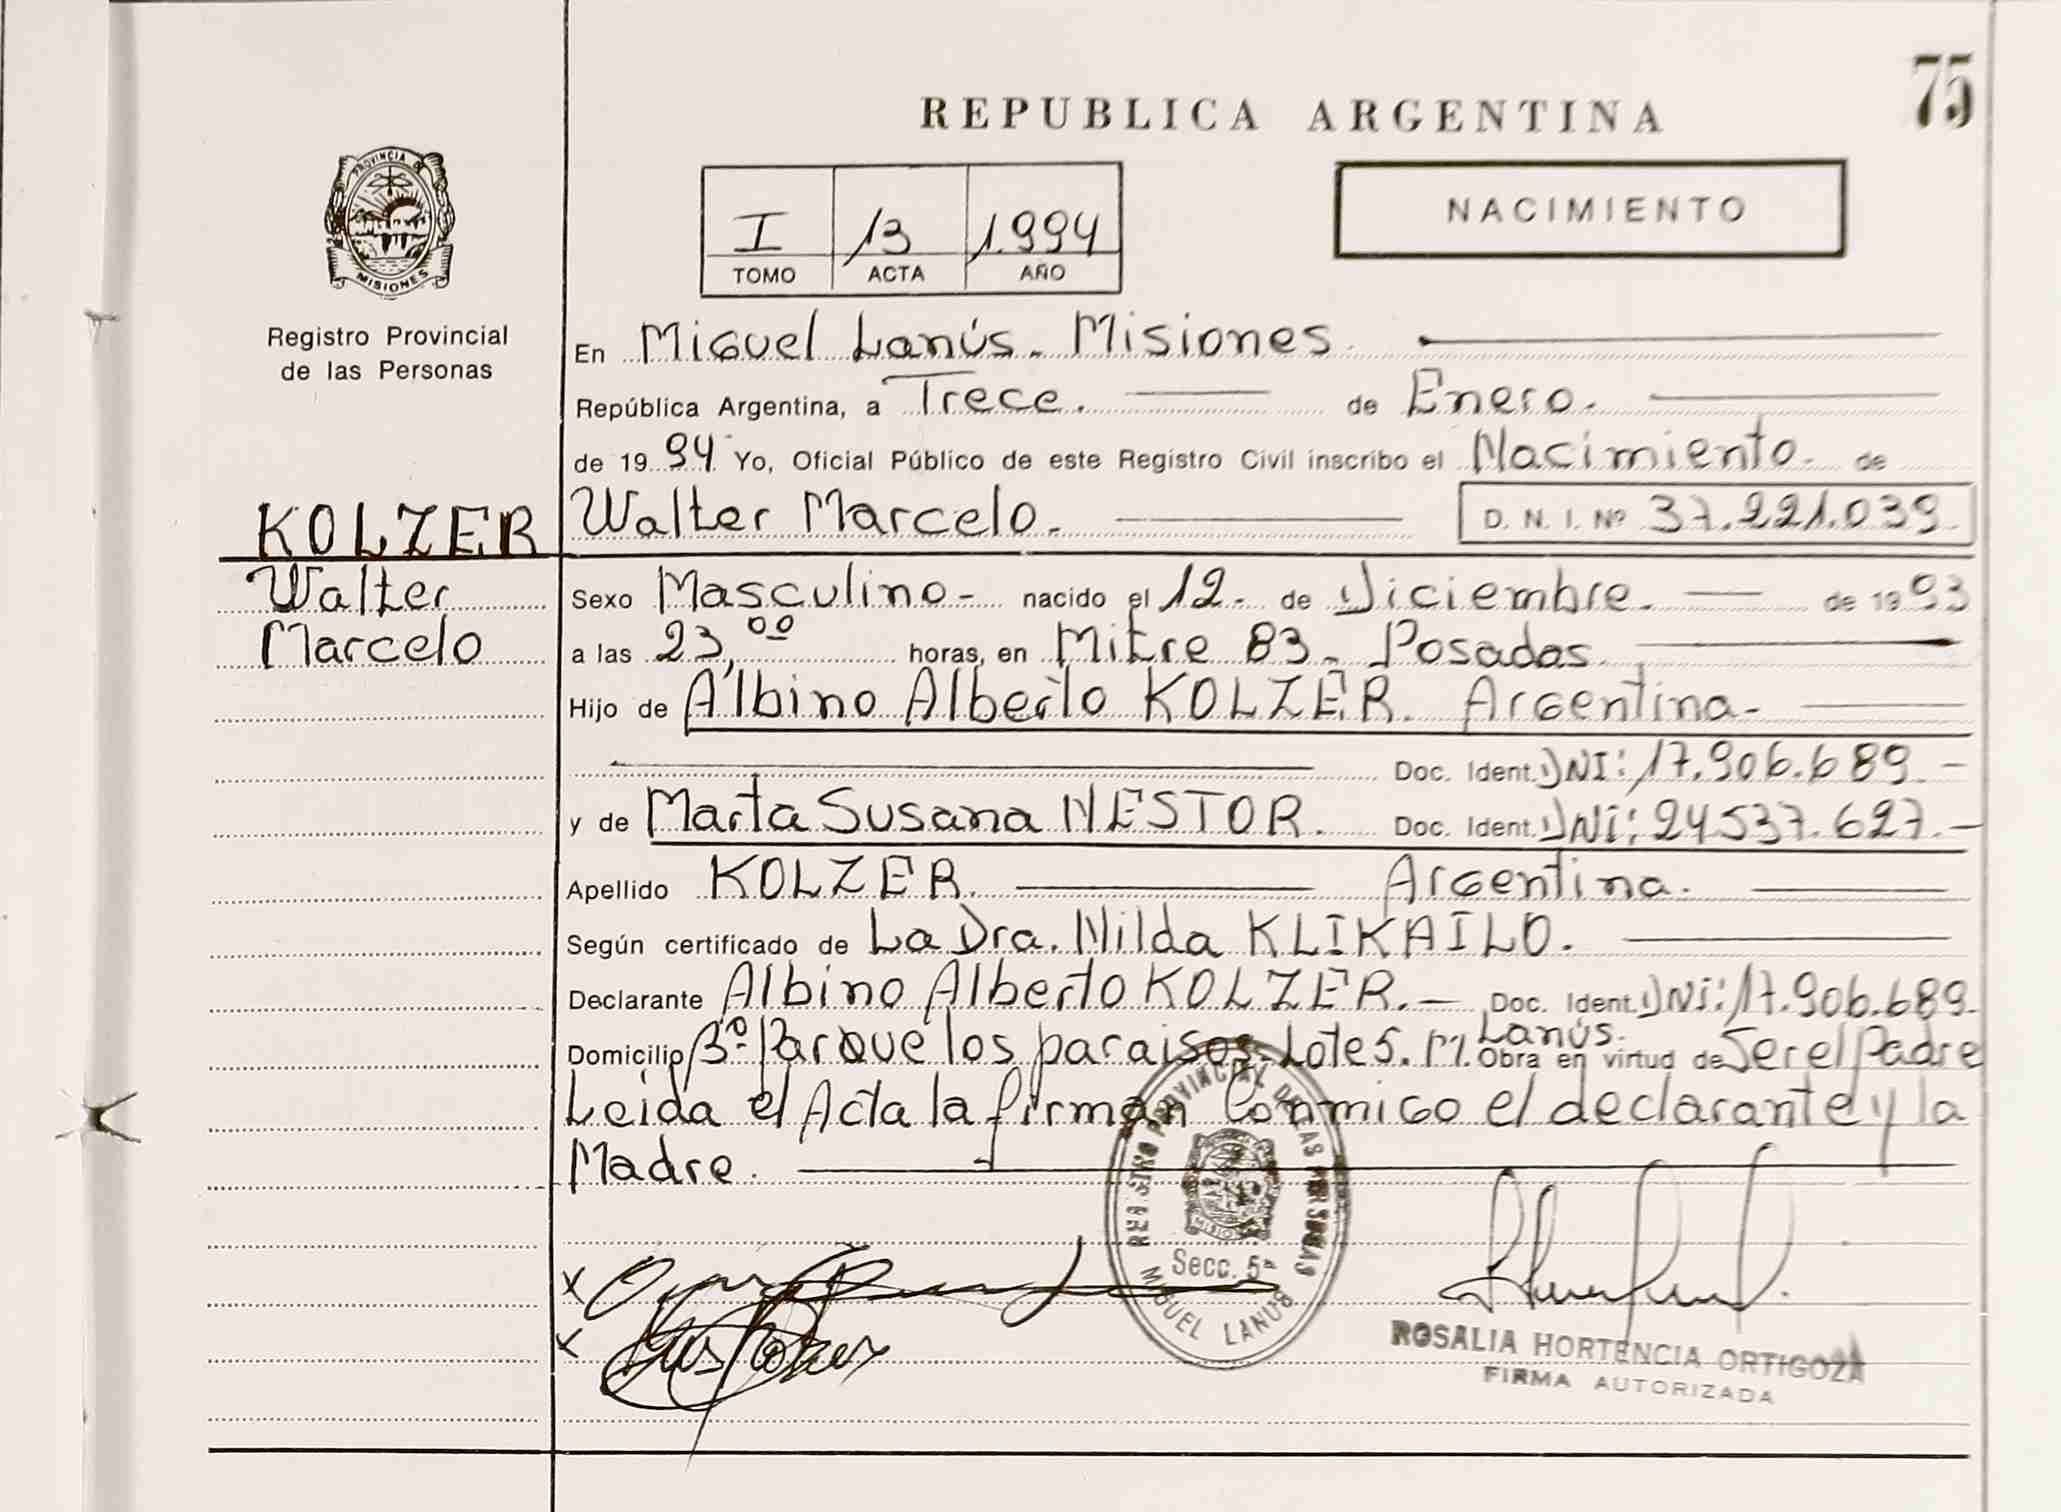 75
REPUBLICA ARGENTINA
PROVINCIA DE
MISIONES
I 13 1.994
TOMO ACTA AÑO
NACIMIENTO
Registro Provincial
de las Personas
En Miguel Lanús. Misiones.
República Argentina, a Trece. de Enero.
de 1994 Yo, Oficial Público de este Registro Civil inscribo el Nacimiento. de
KOLZER Walter Marcelo. D. N. I. Nº 37.221.039
Walter Sexo Masculino- nacido el 12. de Diciembre. de 1993
Marcelo a las 23,00 horas, en Mitre 83. Posadas.
Hijo de Albino Alberto KOLZER. Argentina-
Doc. Ident. DNI: 17.906.689.-
y de Marta Susana NESTOR. Doc. Ident. DNi: 24537.627.-
Apellido KOLZER. Argentina.
Según certificado de La Dra. Nilda KLIKAILO.
Declarante Albino Alberto KOLZER.- Doc. Ident. DNi: 17.906.689.
Domicilio Bº Parque los paraisos. Lote 5. M. Lanús. Obra en virtud de Ser el Padre
Leida el Acta la firman Conmigo el declarante y la
Madre.
REGISTRO PROVINCIAL DE LAS PERSONAS
MISIONES
Secc. 5ª
MIGUEL LANUS
X
X
ROSALIA HORTENCIA ORTIGOZA
FIRMA AUTORIZADA